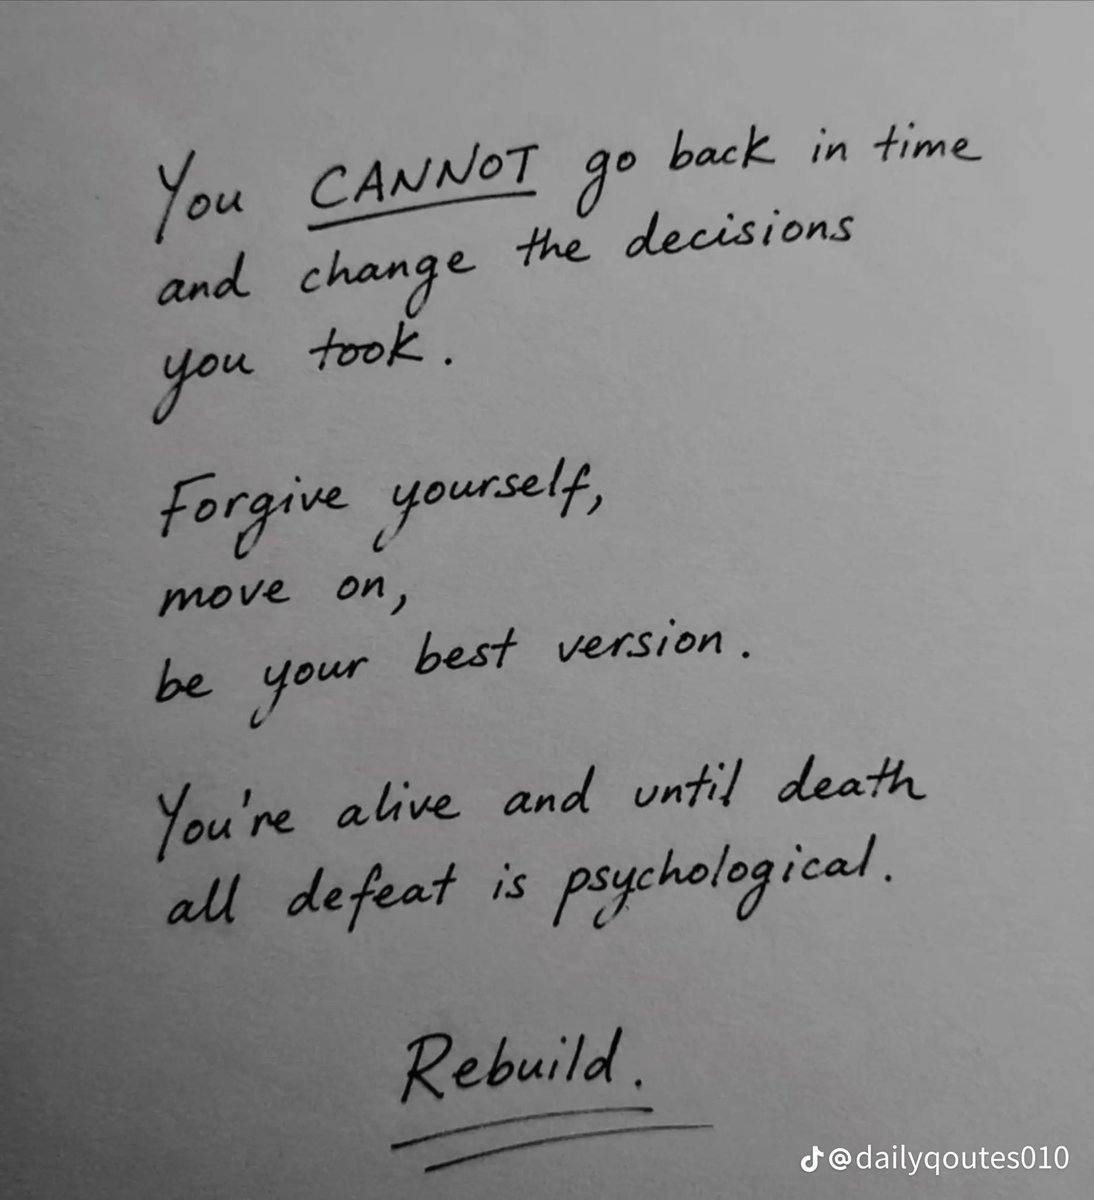 You CANNOT go back in time
and change the decisions
you took.
Forgive yourself,
move on,
be your best version.
You're alive and until death
all defeat is psychological.
Rebuild.
@dailyqoutes010